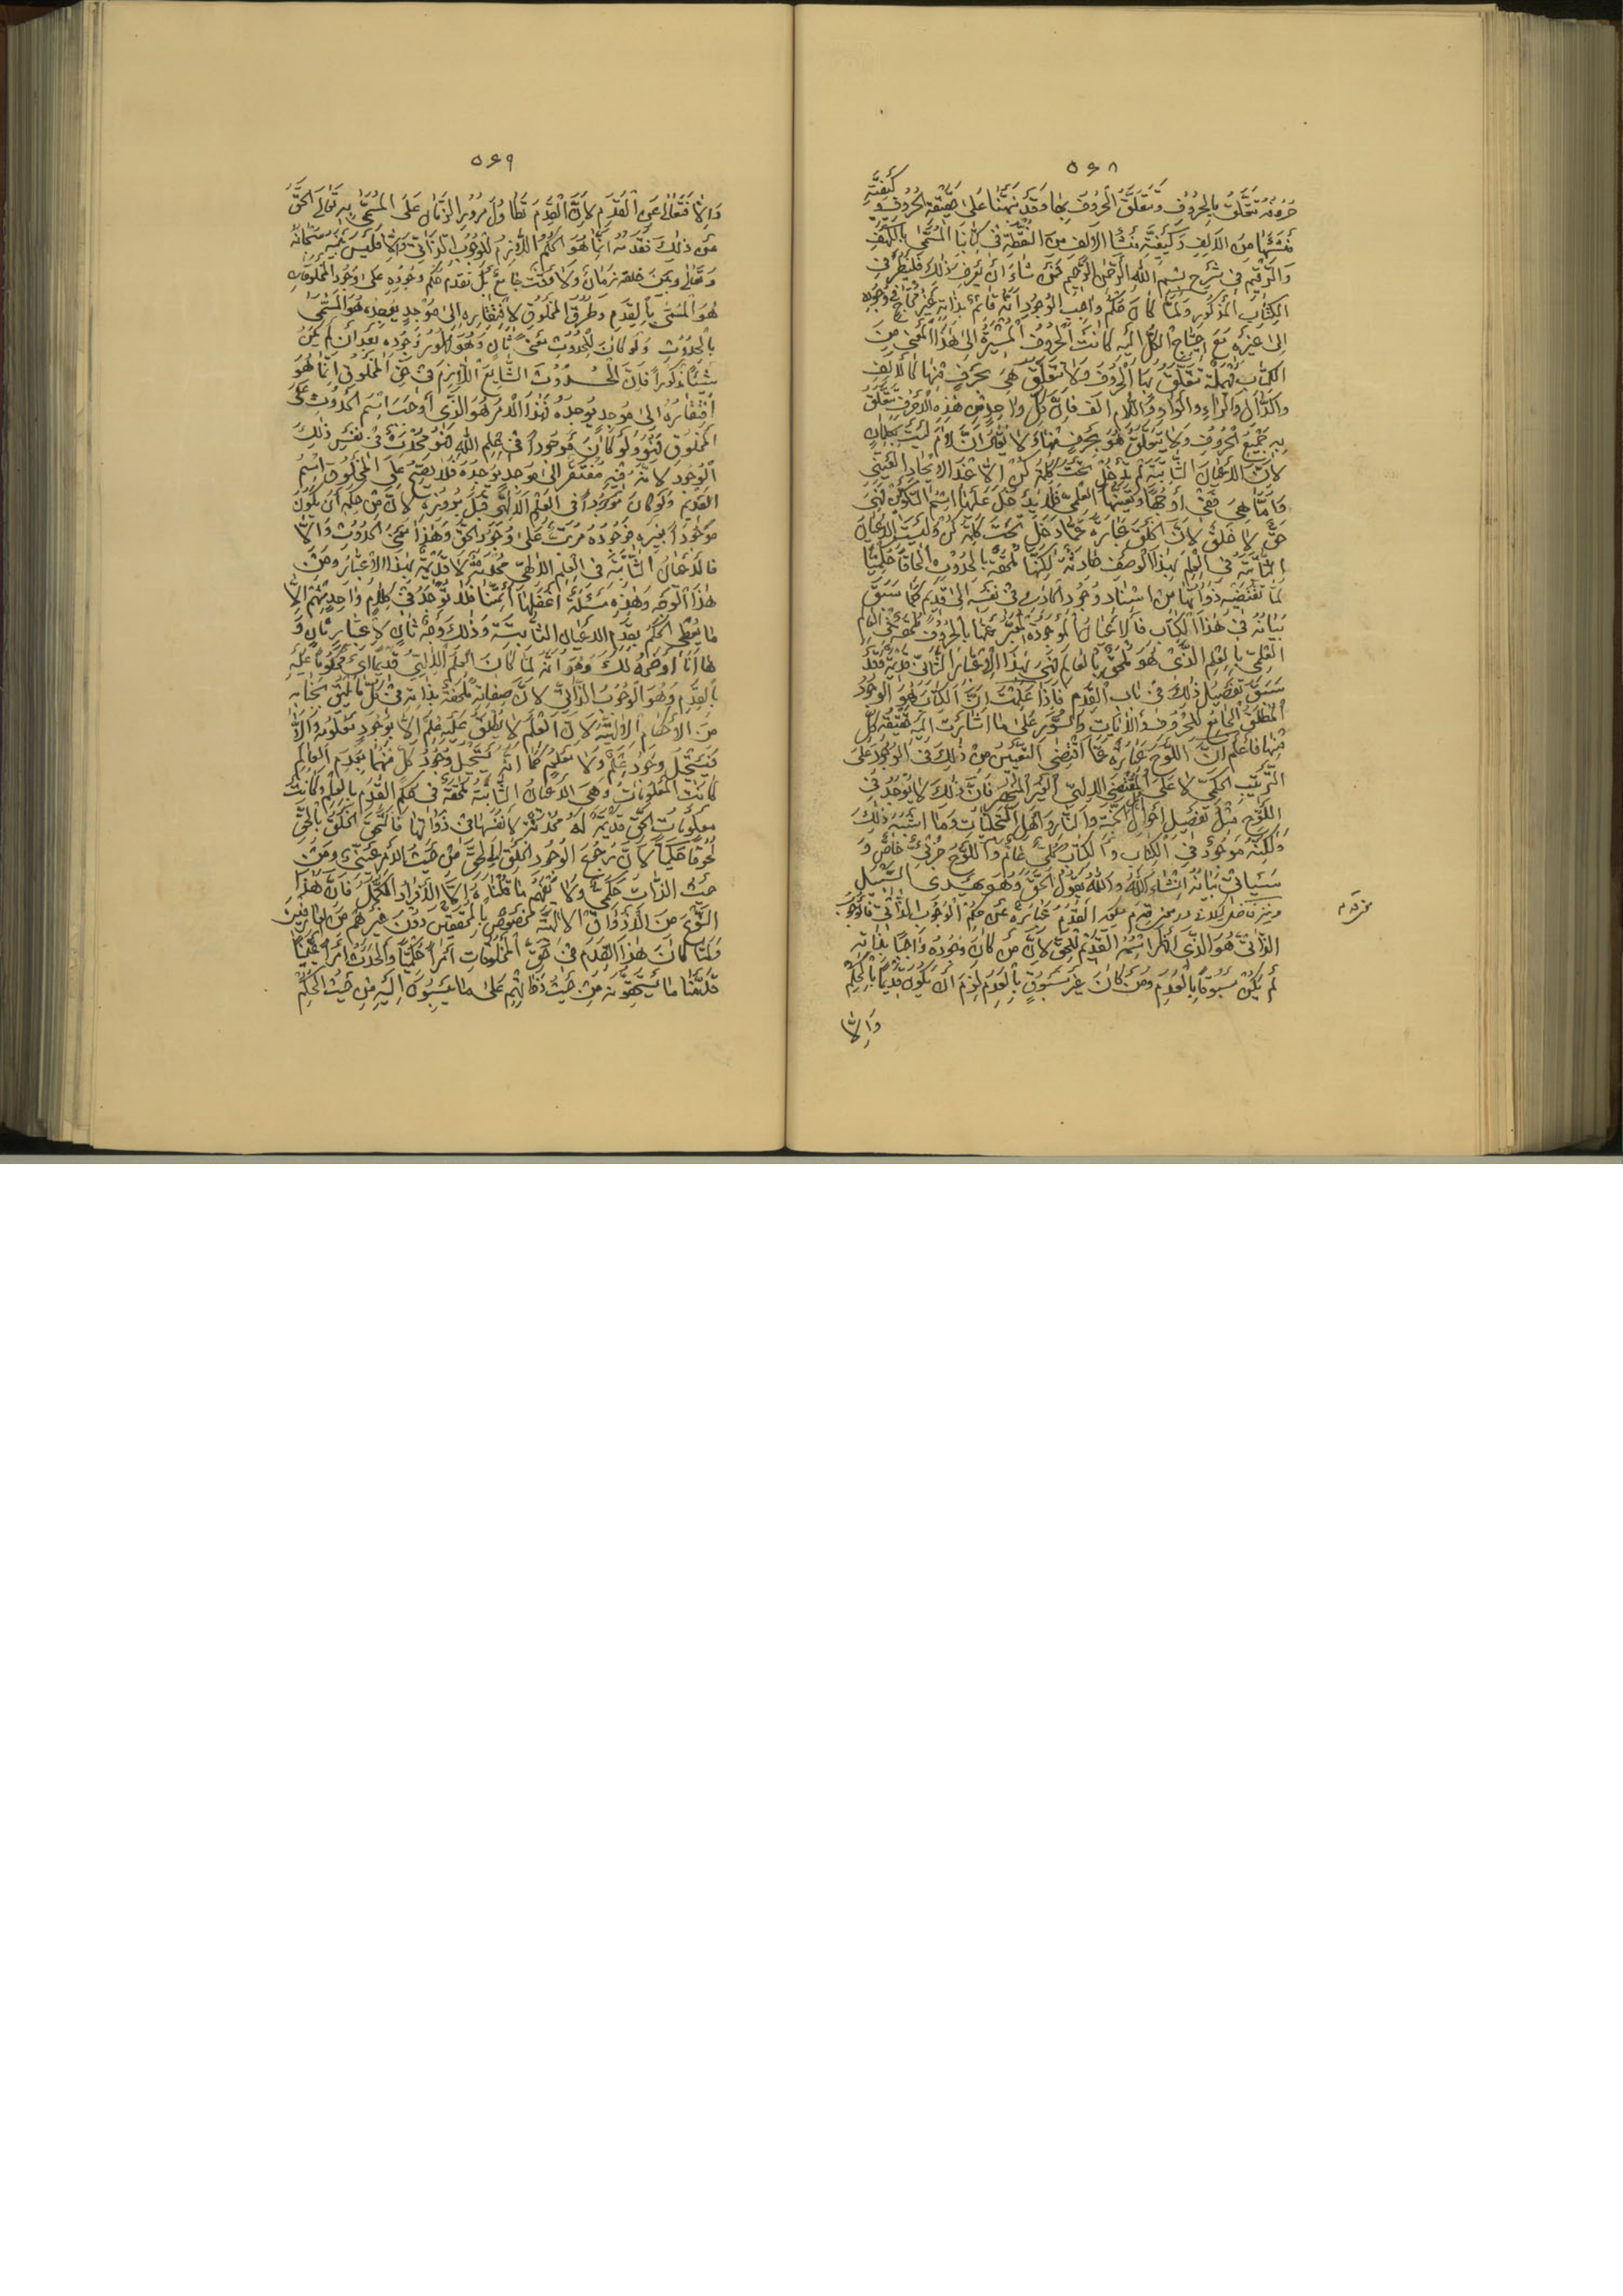 ٥٤٨
حروفه تتعلق بالحروف وتتعلق الحروف بها وقد نبهنا على حقيقة الحروف و كيفية
منشئها من الالف وكيفية منشأ الالف من النقطة في كتابنا المسمى بالكهف
والرقيم في شرح بسم الله الرحمن الرحيم فمن شاء ان يعرف ذلك فلينظر في
الكتاب المذكور ولما كان حكم واجب الوجود انه قائم بذاته غير محتاج في وجوده
الى غيره مع احتياج الكل اليه كانت الحروف المشيرة الى هذا المعنى من
الكتاب مهملة تتعلق بها الحروف ولا تتعلق هي بحرف منها كالالف
والدال والراء والواو واللام الف فان كل واحد من هذه الاحرف تتعلق
به جميع الحروف ولا يتعلق هو بحرف منها ولا يقال ان لام
لان الاعيان الثابتة لم تدخل تحت كلمة كن الا عند الايجاد العيني
واما هي ففي اوجها وتعينها العلمي فلا يدخل عليها اسم التكوين فهي
حق لا خلق لان الخلق عبارة عما دخل تحت كلمة كن وليست الاعيان
الثابتة في العلم بهذا الوصف لكنها ملحقة بالحدوث الحاقا حكميا
لما تقتضيه ذواتها من استناد وجود الحادث في نفسه الى قديم كما سبق
بيانه في هذا الكتاب فالاعيان الموجودة المعبر عنها بالحروف ملحقة في العالم
العلمي بالعلم الذي هو ملحق بالعالم فهي بهذا الاعتبار الثاني قديمة وقد
سبق تفصيل ذلك في باب القدم فاذا علمت ان الكتاب هو الوجود
المطلق الجامع للحروف والآيات والسور على ما اشارت اليه حقيقة كل
منها فاعلم ان اللوح عبارة عما اقتضى التعيين من ذلك في الوجود على
الترتيب الحكمي لا على المقتضى الالهي الغير المنحصر فان ذلك لا يوجد في
اللوح مثل تفصيل احوال الجنة والنار واهل التجليات وما اشبه ذلك
ولكنه موجود في الكتاب والكتاب كلي عام واللوح جزئي خاص و
سيأتي بيانه ان شاء الله والله يقول الحق وهو يهدي السبيل
القدم عبارة عن حكم الوجوب الذاتي فالوجوب
الذاتي هو الذي اظهر اسمه القديم للحق لان من كان وجوده واجبا بذاته
لم يكن مسبوقا بالعدم ومن كان غير مسبوق بالعدم لزم ان يكون قديما بالحكم
والا
٥٤٩
والا فتعالى عن القدم لان القدم تطاول مرور الزمان على المسمى به تعالى الحق
عن ذلك فقدمه انما هو الحكم اللازم للوجوب الذاتي والا فليس بينه سبحانه
وتعالى وبين خلقه زمان ولا وقت جامع بل تقدم حكم وجوده على وجود المخلوقات
هو المسمى بالقدم وطرو المخلوق لافتقاره الى موجد يوجده هو المسمى
بالحدوث ولو كان للحدوث معنى ثان وهو ظهور وجوده بعد ان لم يكن
شيئا مذكورا فان الحدوث الشايع اللازم في حق المخلوق انما هو
افتقاره الى موجد يوجده فهذا الامر هو الذي اوجب اسم الحدوث على
المخلوق فهو ولو كان موجودا في علم الله فهو محدث في نفس ذلك
الوجود لانه فيه مفتقر الى موجد يوجده فلا يصح على المخلوق اسم
القديم ولو كان موجودا في العلم الالهي قبل بروزه لان من حكمه ان يكون
موجودا بغيره فوجوده مرتب على وجود الحق وهذا معنى الحدوث والا
فالاعيان الثابتة في العلم الالهي محدثة لا قديمة بهذا الاعتبار ومن
هذا الوجه وهذه مسئلة اغفلها ائمتنا فلا يوجد في كلام واحد منهم الا
ما يعطي الحكم بقدم الاعيان الثابتة وذلك وجه ثان لاعتبار ثان و
ها انا اوضحه لك وهو انه لما كان العلم الالهي قديما اي محكوما عليه
بالقدم وهو الوجوب الذاتي لان صفاته ملحقة بذاته في كل ما يليق بجنابه
من الاحكام الالهية لان العلم لا يطلق عليه علم الا بوجود معلومه والا
فيستحيل وجود علم ولا معلوم كما انه يستحيل وجود كل منهما بعدم العالم
كانت المعلومات وهي الاعيان الثابتة ملحقة في حكم القدم بالعلم وكانت
معلومات الحق قديمة له محدثة لانفسها في ذواتها فالتحق الخلق بالحق
لحوقا حكميا لان رجوع الوجود الخلقي للحق من حيث الامر عيني ومن
حيث الذات حكمي ولا يفهم ما قلناه الا الافراد الكمل فان هذا
النوع من الاذواق الالهية مخصوص بالمحققين دون غيرهم من العارفين
ولما كان هذا القدم في حق المخلوقات امرا حكميا والحدث امرا عينيا
قدمنا ما يستحقونه من حيث ذواتهم على ما ينسبون اليه من حيث الحكم